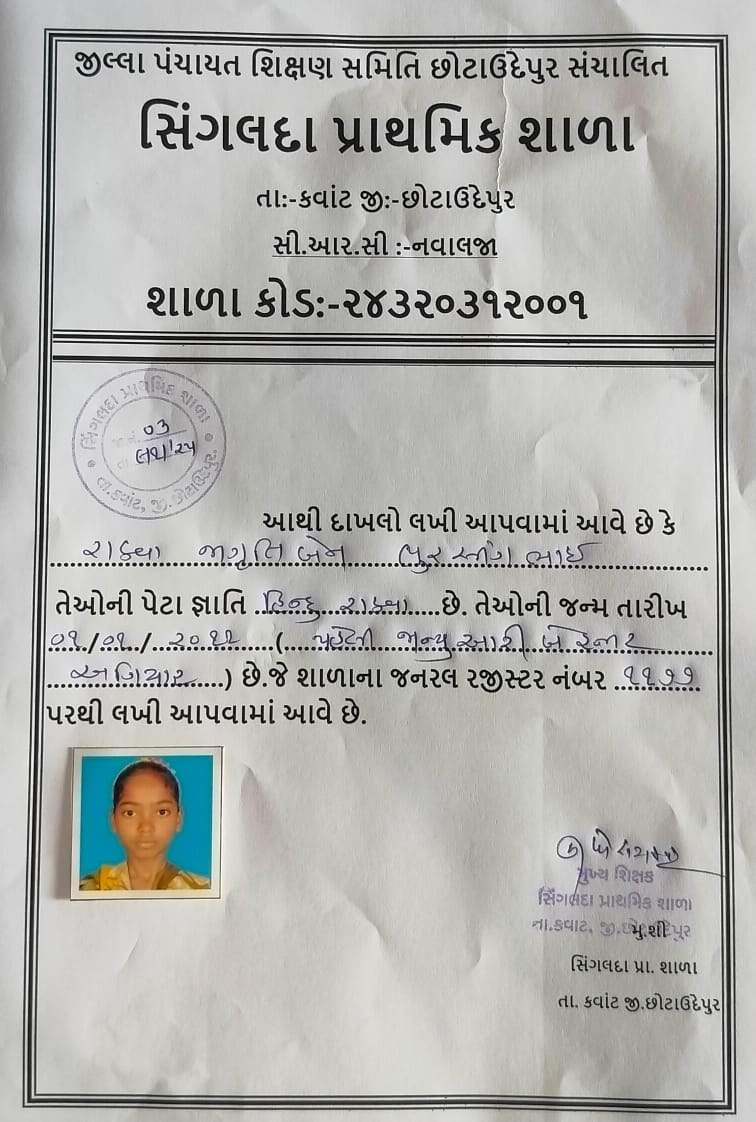 જીલ્લા પંચાયત શિક્ષણ સમિતિ છોટાઉદેપુર સંચાલિત
સિંગલદા પ્રાથમિક શાળા
તા:-કવાંટ જી:-છોટાઉદેપુર
સી.આર.સી :-નવાલજા
શાળા કોડ:-૨૪૩૨૦૩૧૨૦૦૧
સિંગલદા પ્રાથમિક શાળા
તા.કવાંટ, જી.છોટાઉદેપુર
૦૩
આથી દાખલો લખી આપવામાં આવે છે કે
રાઠવા જાગૃતિ બેન ભુરસીંગ ભાઈ
તેઓની પેટા જ્ઞાતિ હિન્દુ રાઠવા છે. તેઓની જન્મ તારીખ
૦૧/૦૧/૨૦૧૧ (પહેલી જાન્યુઆરી બે હજાર
અગિયાર) છે.જે શાળાના જનરલ રજીસ્ટર નંબર ૧૧૭૭
પરથી લખી આપવામાં આવે છે.
મુખ્ય શિક્ષક
સિંગલદા પ્રાથમિક શાળા
તા.કવાટ, જી.છોટાઉદેપુર
મુ.શી
સિંગલદા પ્રા. શાળા
તા. કવાંટ જી.છોટાઉદેપુર